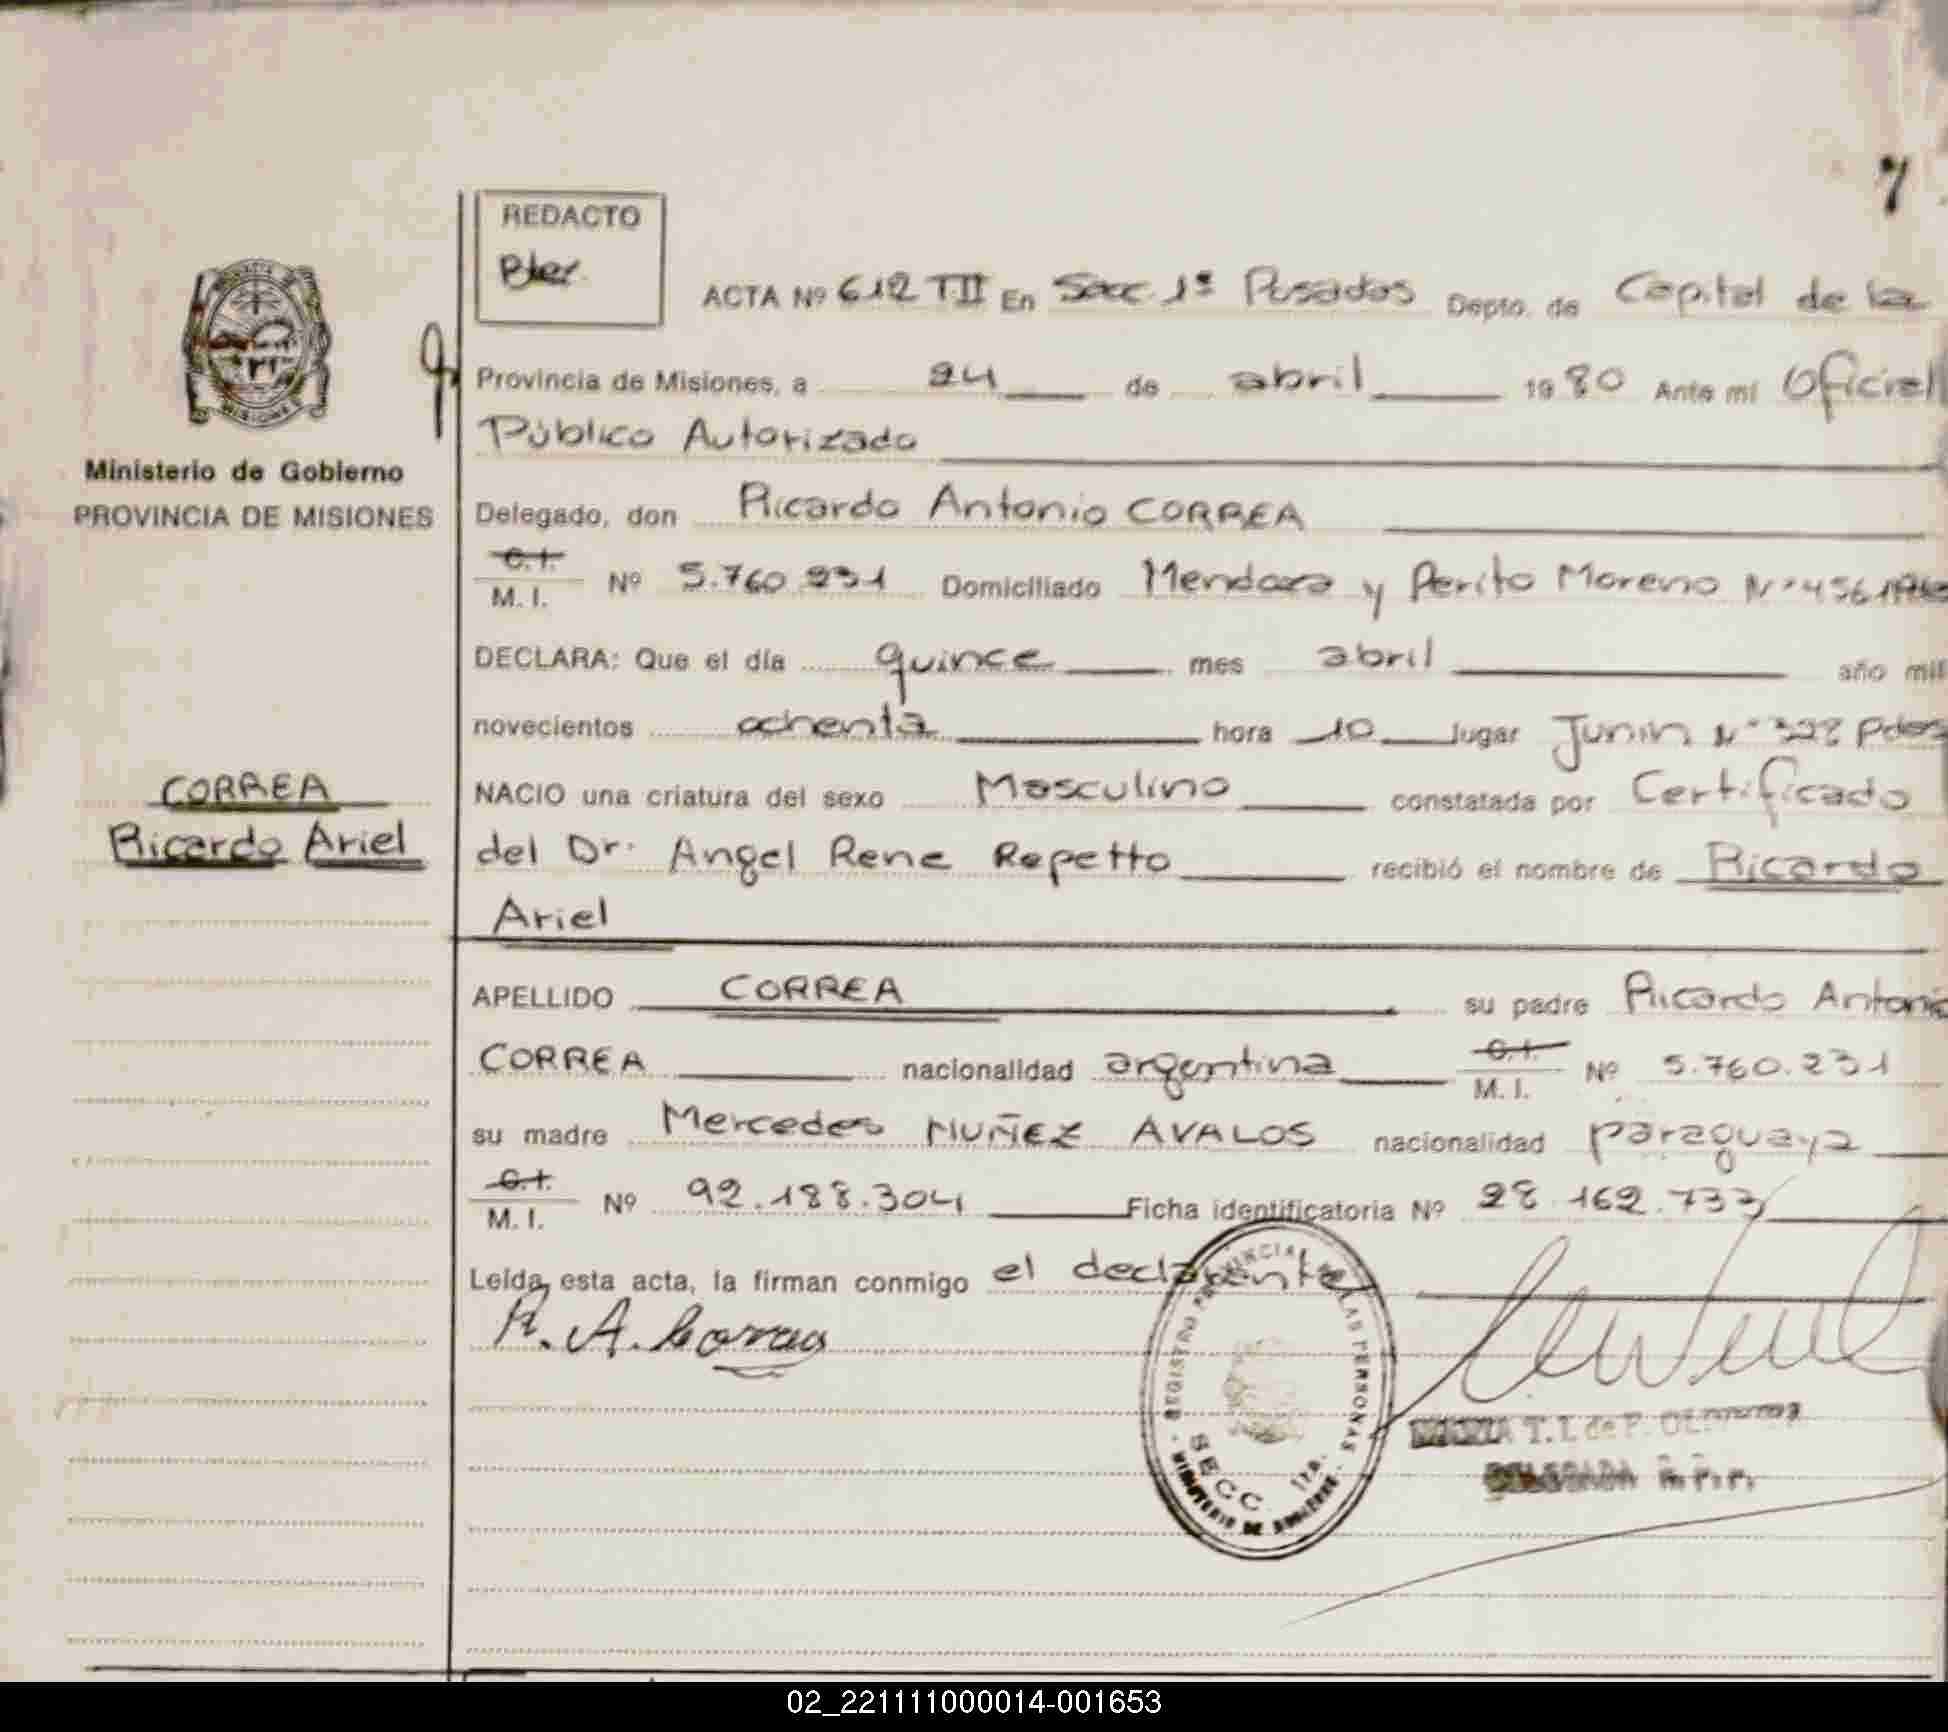 7
REDACTO
ACTA Nº 612 TII En Secc. 1ª Posadas Depto. de Capital de la
Provincia de Misiones, a 24 de abril 1980 Ante mí Oficial
Público Autorizado
Ministerio de Gobierno
PROVINCIA DE MISIONES
Delegado, don Ricardo Antonio CORREA
C.I.
M. I. Nº 5.760.231 Domiciliado Mendoza y Perito Moreno Nº 456
DECLARA: Que el día quince mes abril año mil
novecientos ochenta hora 10 lugar Junin Nº 328 Pdas
NACIO una criatura del sexo Masculino constatada por Certificado
del Dr. Angel Rene Repetto recibió el nombre de Ricardo
Ariel
CORREA
Ricardo Ariel
APELLIDO CORREA su padre Ricardo Antonio
CORREA nacionalidad argentina C.I.
M. I. Nº 5.760.231
su madre Mercedes NUÑEZ AVALOS nacionalidad paraguaya
C.I.
M. I. Nº 92.188.304 Ficha identificatoria Nº 28.162.733
Leída esta acta, la firman conmigo el declarante
R. A. Correa
REGISTRO PROVINCIAL DE LAS PERSONAS
SECC 1ra.
MINISTERIO DE GOBIERNO
T. I. de P.
DELEGADA R. P. P.
02_221111000014-001653